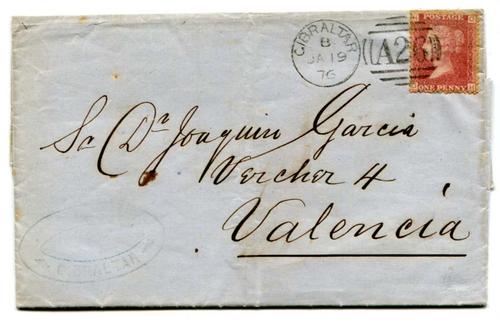 GIBRALTAR
B
JA 19
76
A26
POSTAGE
ONE PENNY
Sr. Dn Joaquin Garcia
Vercher 4
Valencia
GIBRALTAR